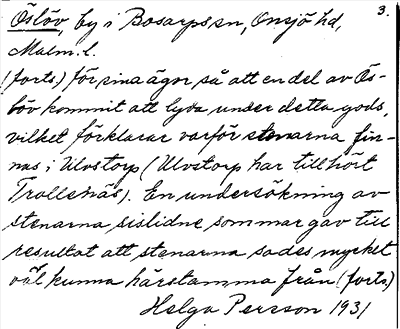 3.
Öslöv, by i Bosarps sn, Onsjö hd,
Malm. l.
(forts) för sina ägor så att en del av Ös-
löv kommit att lyda under detta gods,
vilket förklarar varför stenarna fin-
nas i Ulvstorp (Ulvstorp har tillhört
Trollenäs). En undersökning av
stenarna sislidne sommar gav till
resultat att stenarna sades mycket
väl kunna härstamma från (forts)
Helga Persson 1931